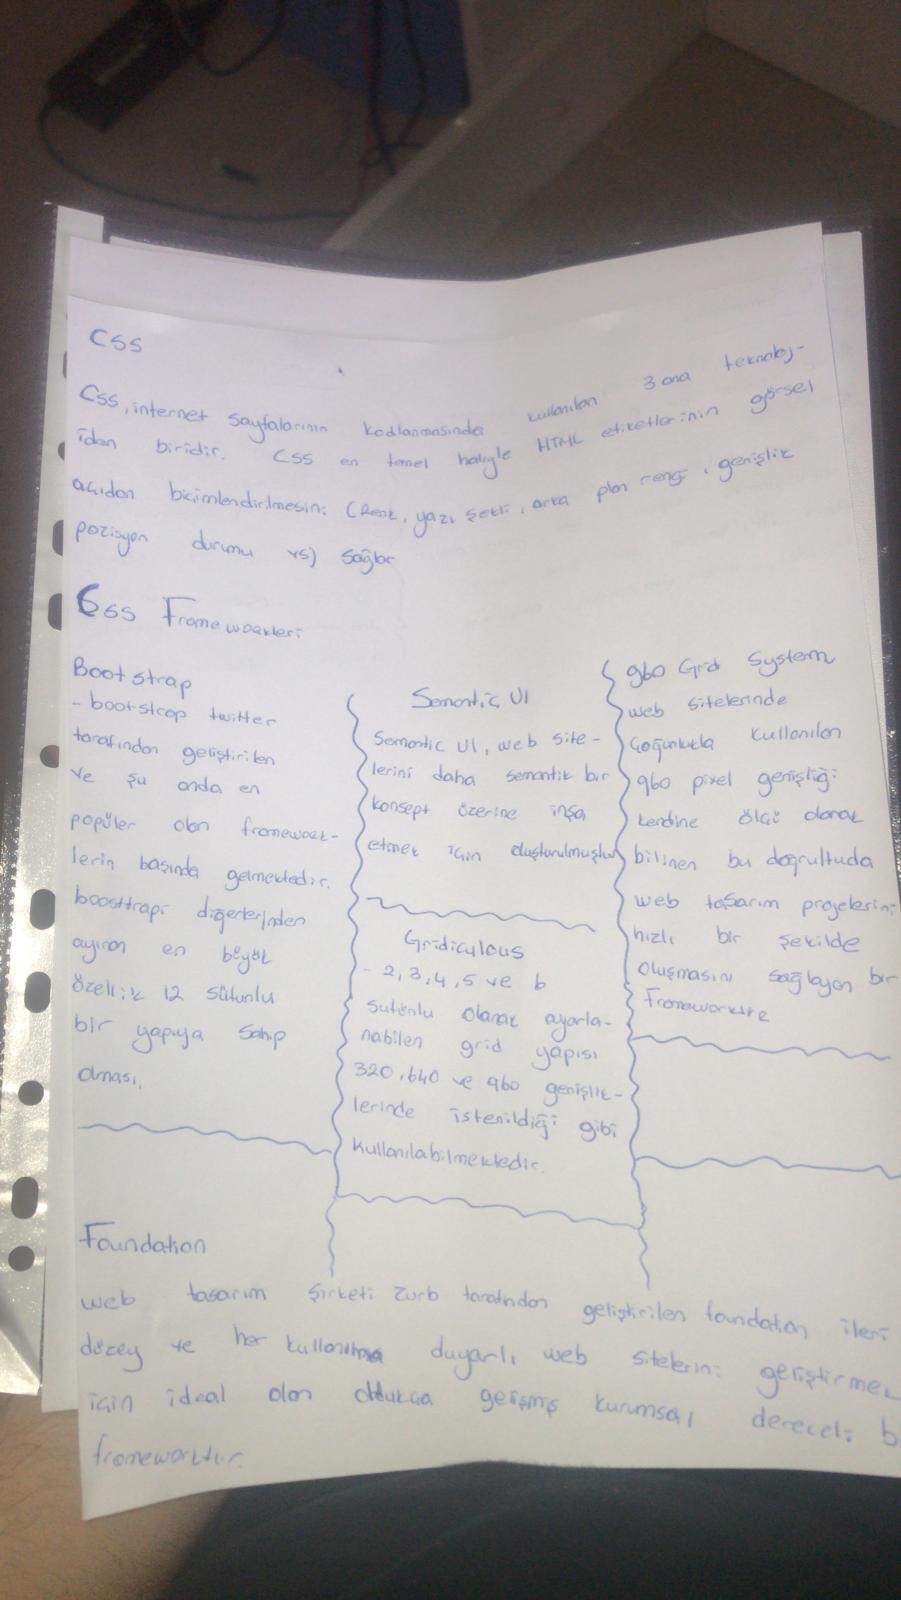 CSS
Css, internet sayfalarının kodlanmasında kullanılan 3 ana teknoloj-
iden biridir. CSS en temel haliyle HTML etiketlerinin görsel
açıdan biçimlendirilmesini (Renk, yazı şekli, arka plan rengi, genişlik
pozisyon durumu vs) sağlar
Css Frameworkleri
Bootstrap
- bootstrap twitter
tarafından geliştirilen
ve şu anda en
popüler olan framework-
lerin başında gelmektedir.
boosttrapı diğerlerinden
ayıran en büyük
özellik 12 sütunlu
bir yapıya sahip
olması.
Semantic UI
Semantic UI, web site-
lerini daha semantik bir
konsept üzerine inşa
etmek için oluşturulmuştur
Gridiculous
- 2,3,4,5 ve 6
sutunlu olarak ayarla-
nabilen grid yapısı
320,640 ve 960 genişlik-
lerinde istenildiği gibi
kullanılabilmektedir.
960 Grid System
web sitelerinde
çoğunlukla kullanılan
960 pixel genişliği
kendine ölçü olarak
bilinen bu doğrultuda
web tasarım projelerini
hızlı bir şekilde
oluşmasını sağlayan bir
Frameworktre
Foundation
web tasarım şirketi zurb tarafından geliştirilen foundation ileri
düzey ve her kullanıma duyarlı web sitelerini geliştirmek
için ideal olan oldukça gelişmiş kurumsal dereceli b
frameworktur.